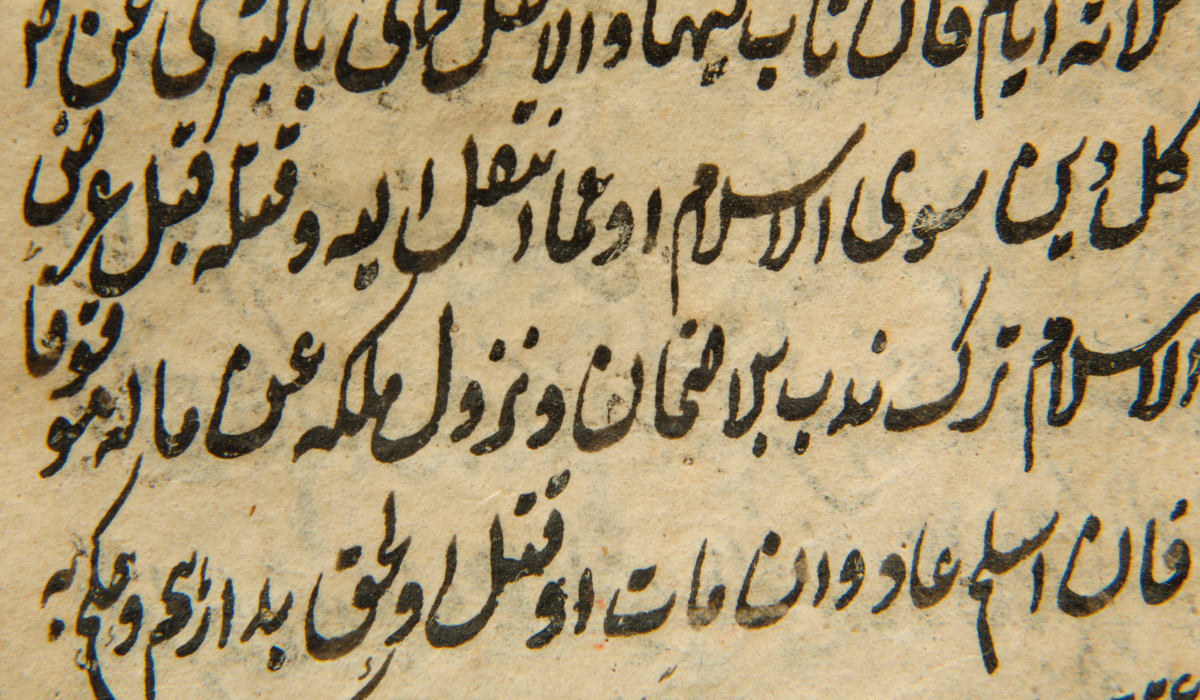 ثلاثة ايام فان تاب فيها والا قتل فاتى بالتبرى عن
كل دين سوى الاسلام او عما انتقل اليه وقتله قبل عرض
الاسلام ترك ندب بلا ضمان ونزول ملكه عن ماله موقوفا
فان اسلم عاد وان مات او قتل او لحق بدارهم وحكم به